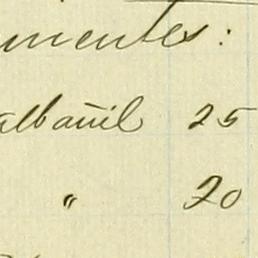 umentes:
albañil 25
" 20